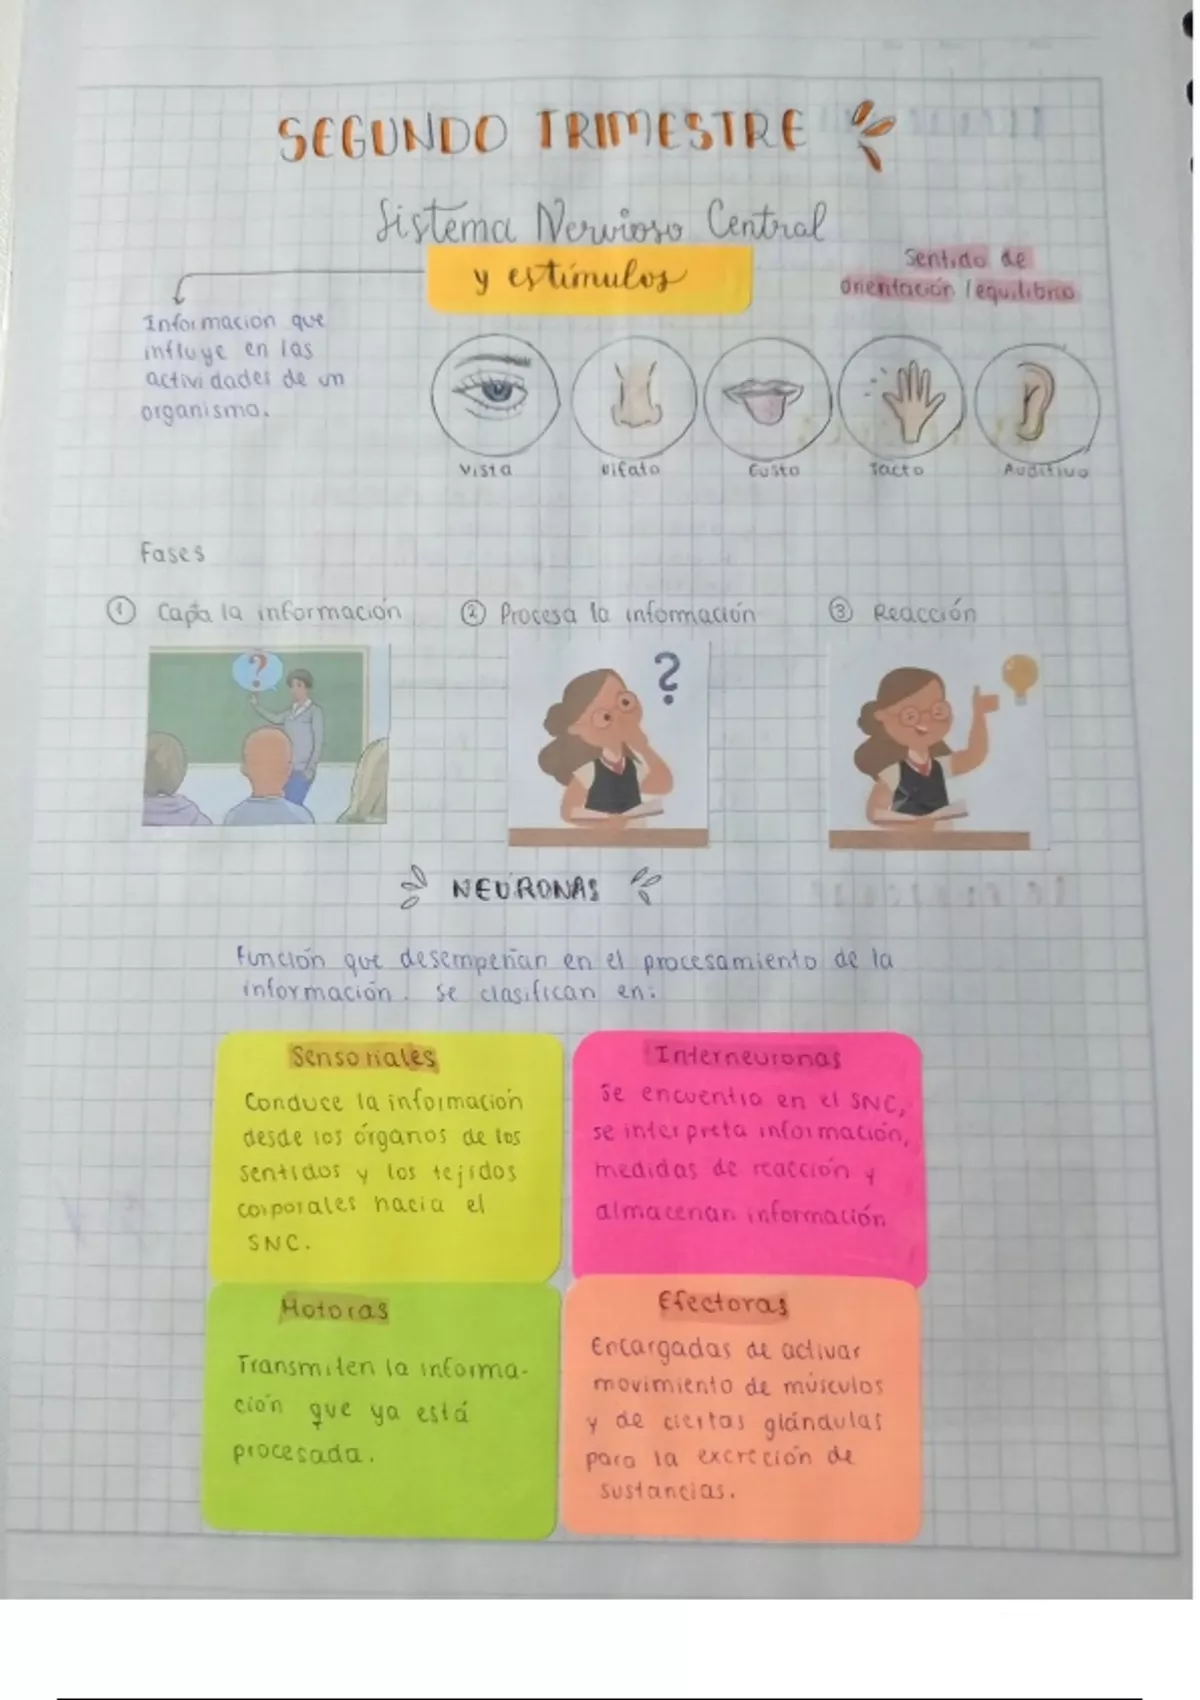 SEGUNDO TRIMESTRE
Sistema Nervioso Central
y estímulos
Sentido de
orientación / equilibrio
Información que
influye en las
actividades de un
organismo.
Vista
Olfato
Gusto
Tacto
Auditivo
Fases
① Capta la información
② Procesa la información
③ Reacción
?
?
NEURONAS
Función que desempeñan en el procesamiento de la
información. Se clasifican en:
Sensoriales
Conduce la información
desde los órganos de los
sentidos y los tejidos
corporales hacia el
SNC.
Interneuronas
Se encuentra en el SNC,
se interpreta información,
medidas de reacción y
almacenan información
Motoras
Transmiten la informa-
ción que ya está
procesada.
Efectoras
Encargadas de activar
movimiento de músculos
y de ciertas glándulas
para la excreción de
sustancias.